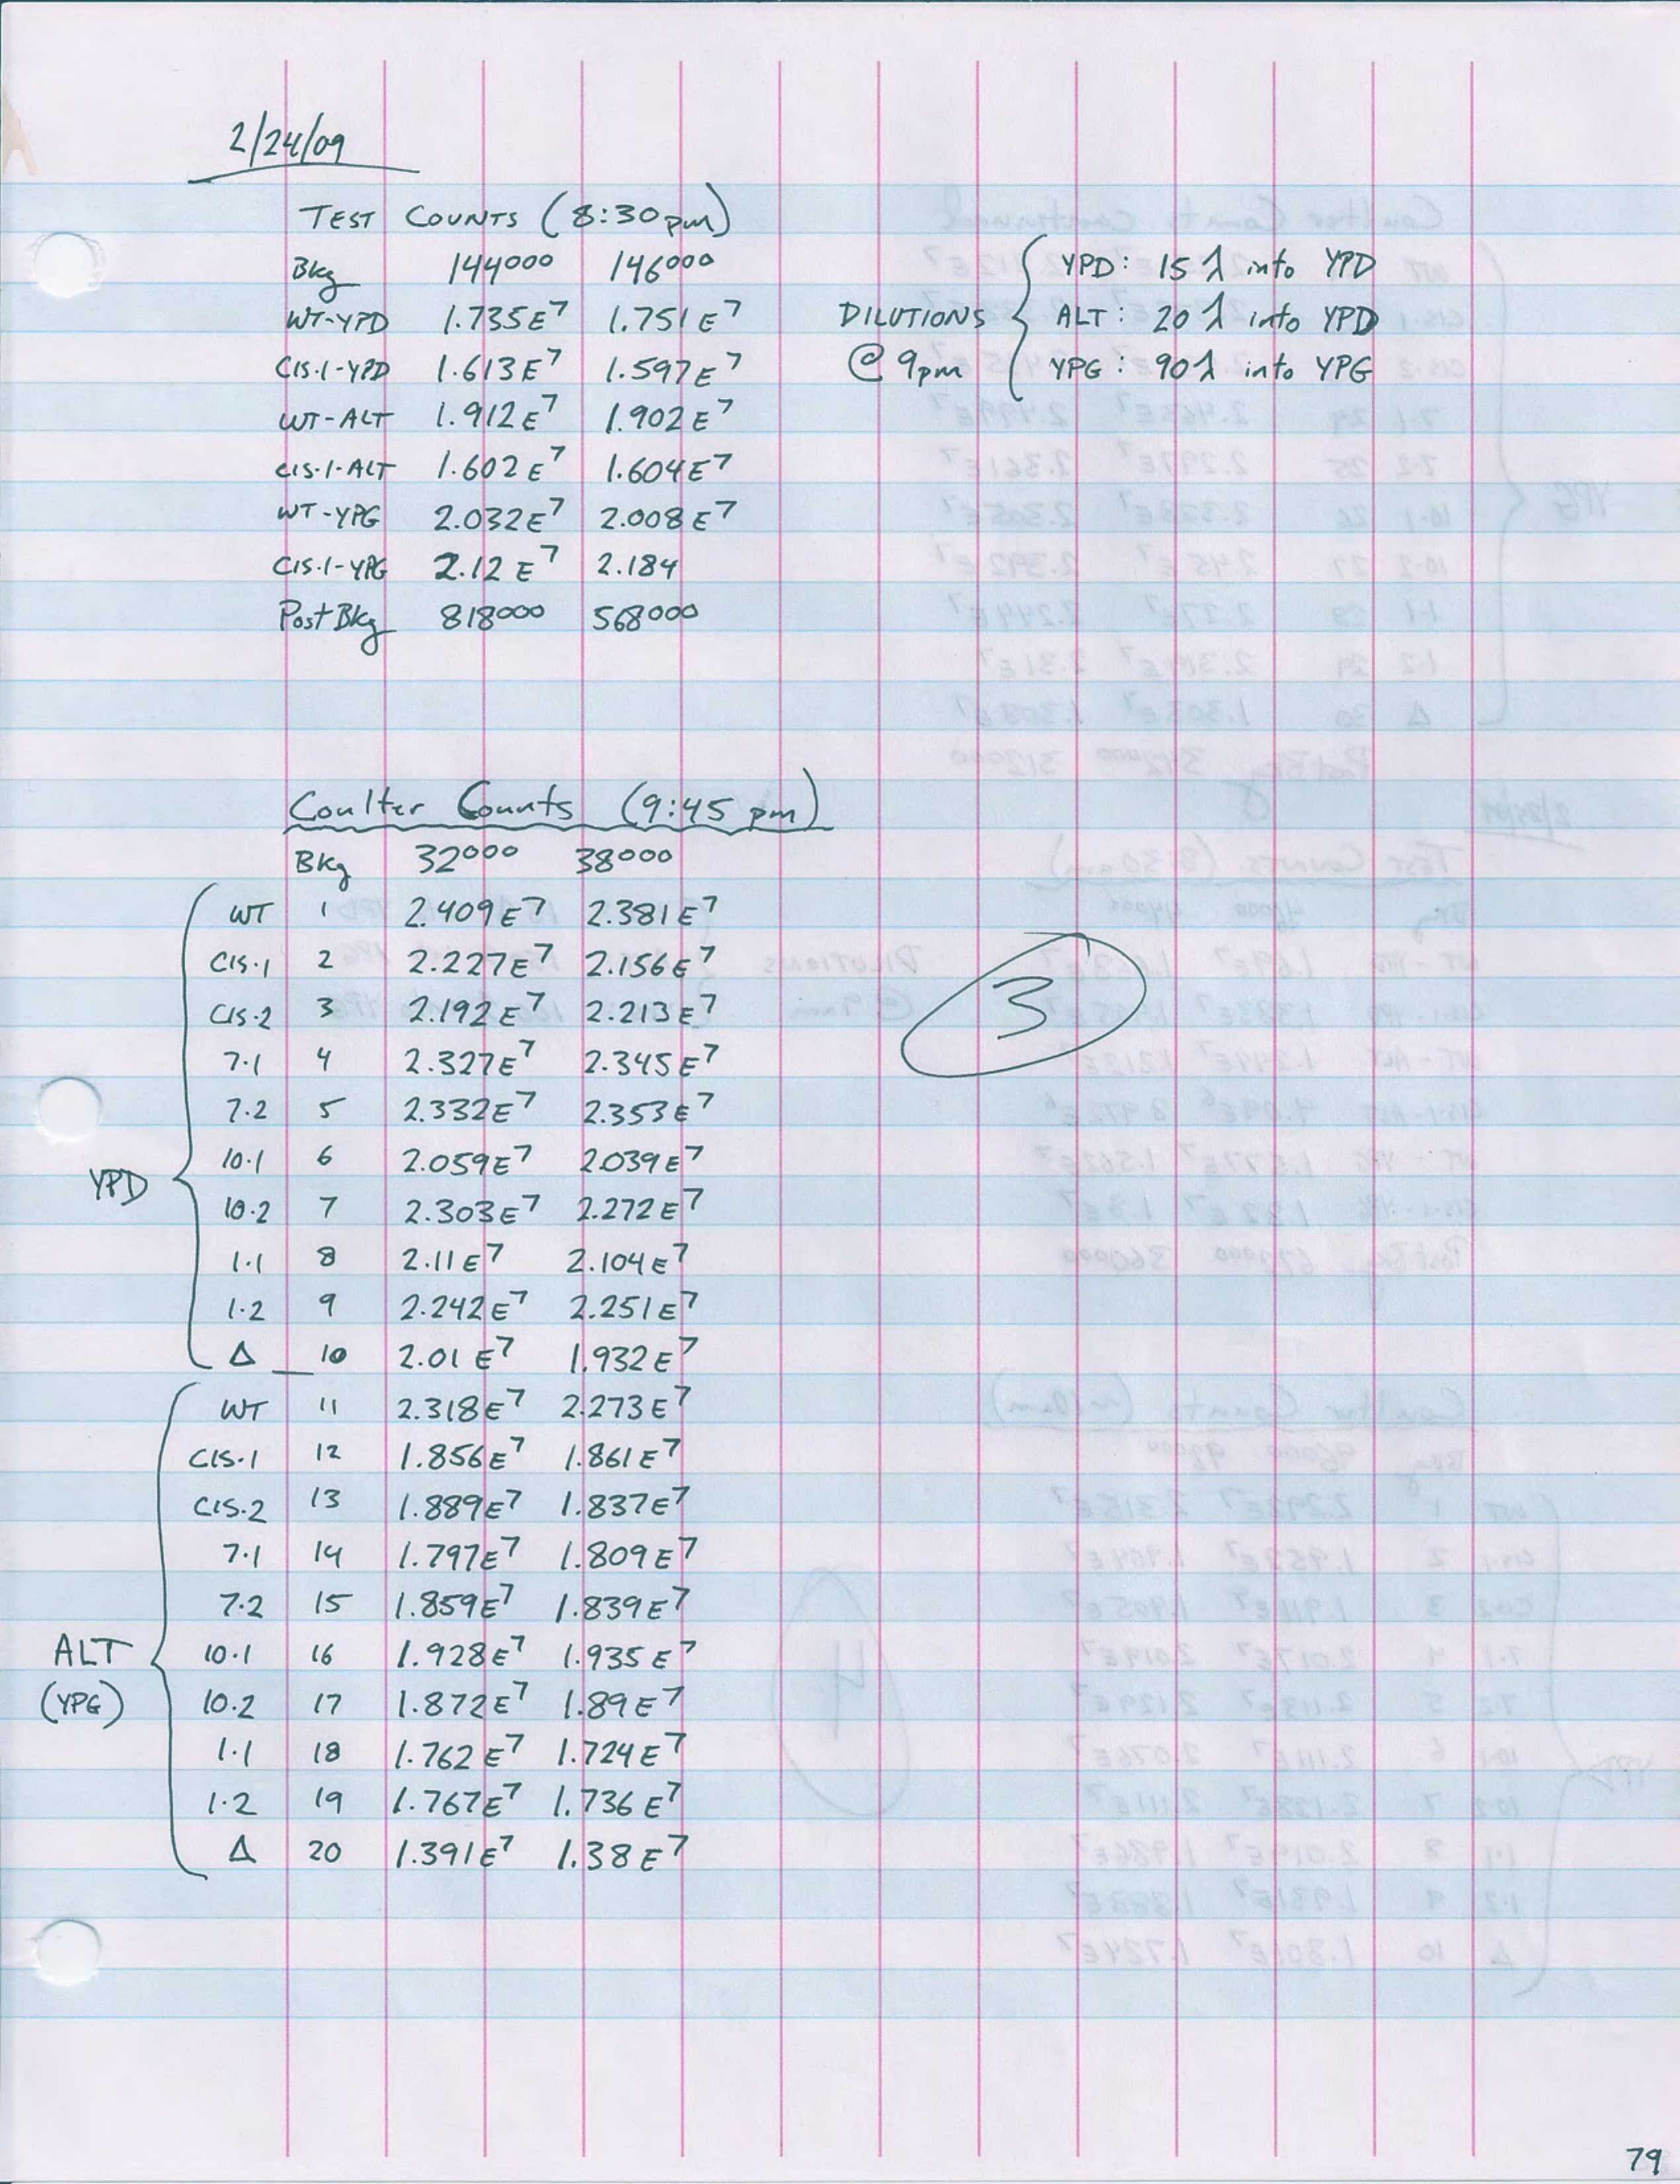 2/24/09
TEST COUNTS (8:30pm)
Bkg 144000 146000
WT-YPD 1.735E7 1.751E7
CIS.1-YPD 1.613E7 1.597E7
WT-ALT 1.912E7 1.902E7
CIS.1-ALT 1.602E7 1.604E7
WT-YPG 2.032E7 2.008E7
CIS.1-YPG 2.12E7 2.184
Post Bkg 818000 568000
DILUTIONS @ 9pm
YPD: 15λ into YPD
ALT: 20λ into YPD
YPG: 90λ into YPG
Coulter Counts (9:45 pm)
Bkg 32000 38000
YPD
WT 1 2.409E7 2.381E7
CIS.1 2 2.227E7 2.156E7
CIS.2 3 2.192E7 2.213E7
7.1 4 2.327E7 2.345E7
7.2 5 2.332E7 2.353E7
10.1 6 2.059E7 2.039E7
10.2 7 2.303E7 2.272E7
1.1 8 2.11E7 2.104E7
1.2 9 2.242E7 2.251E7
Δ 10 2.01E7 1.932E7
3
ALT
(YPG)
WT 11 2.318E7 2.273E7
CIS.1 12 1.856E7 1.861E7
CIS.2 13 1.889E7 1.837E7
7.1 14 1.797E7 1.809E7
7.2 15 1.859E7 1.839E7
10.1 16 1.928E7 1.935E7
10.2 17 1.872E7 1.89E7
1.1 18 1.762E7 1.724E7
1.2 19 1.767E7 1.736E7
Δ 20 1.391E7 1.38E7
79